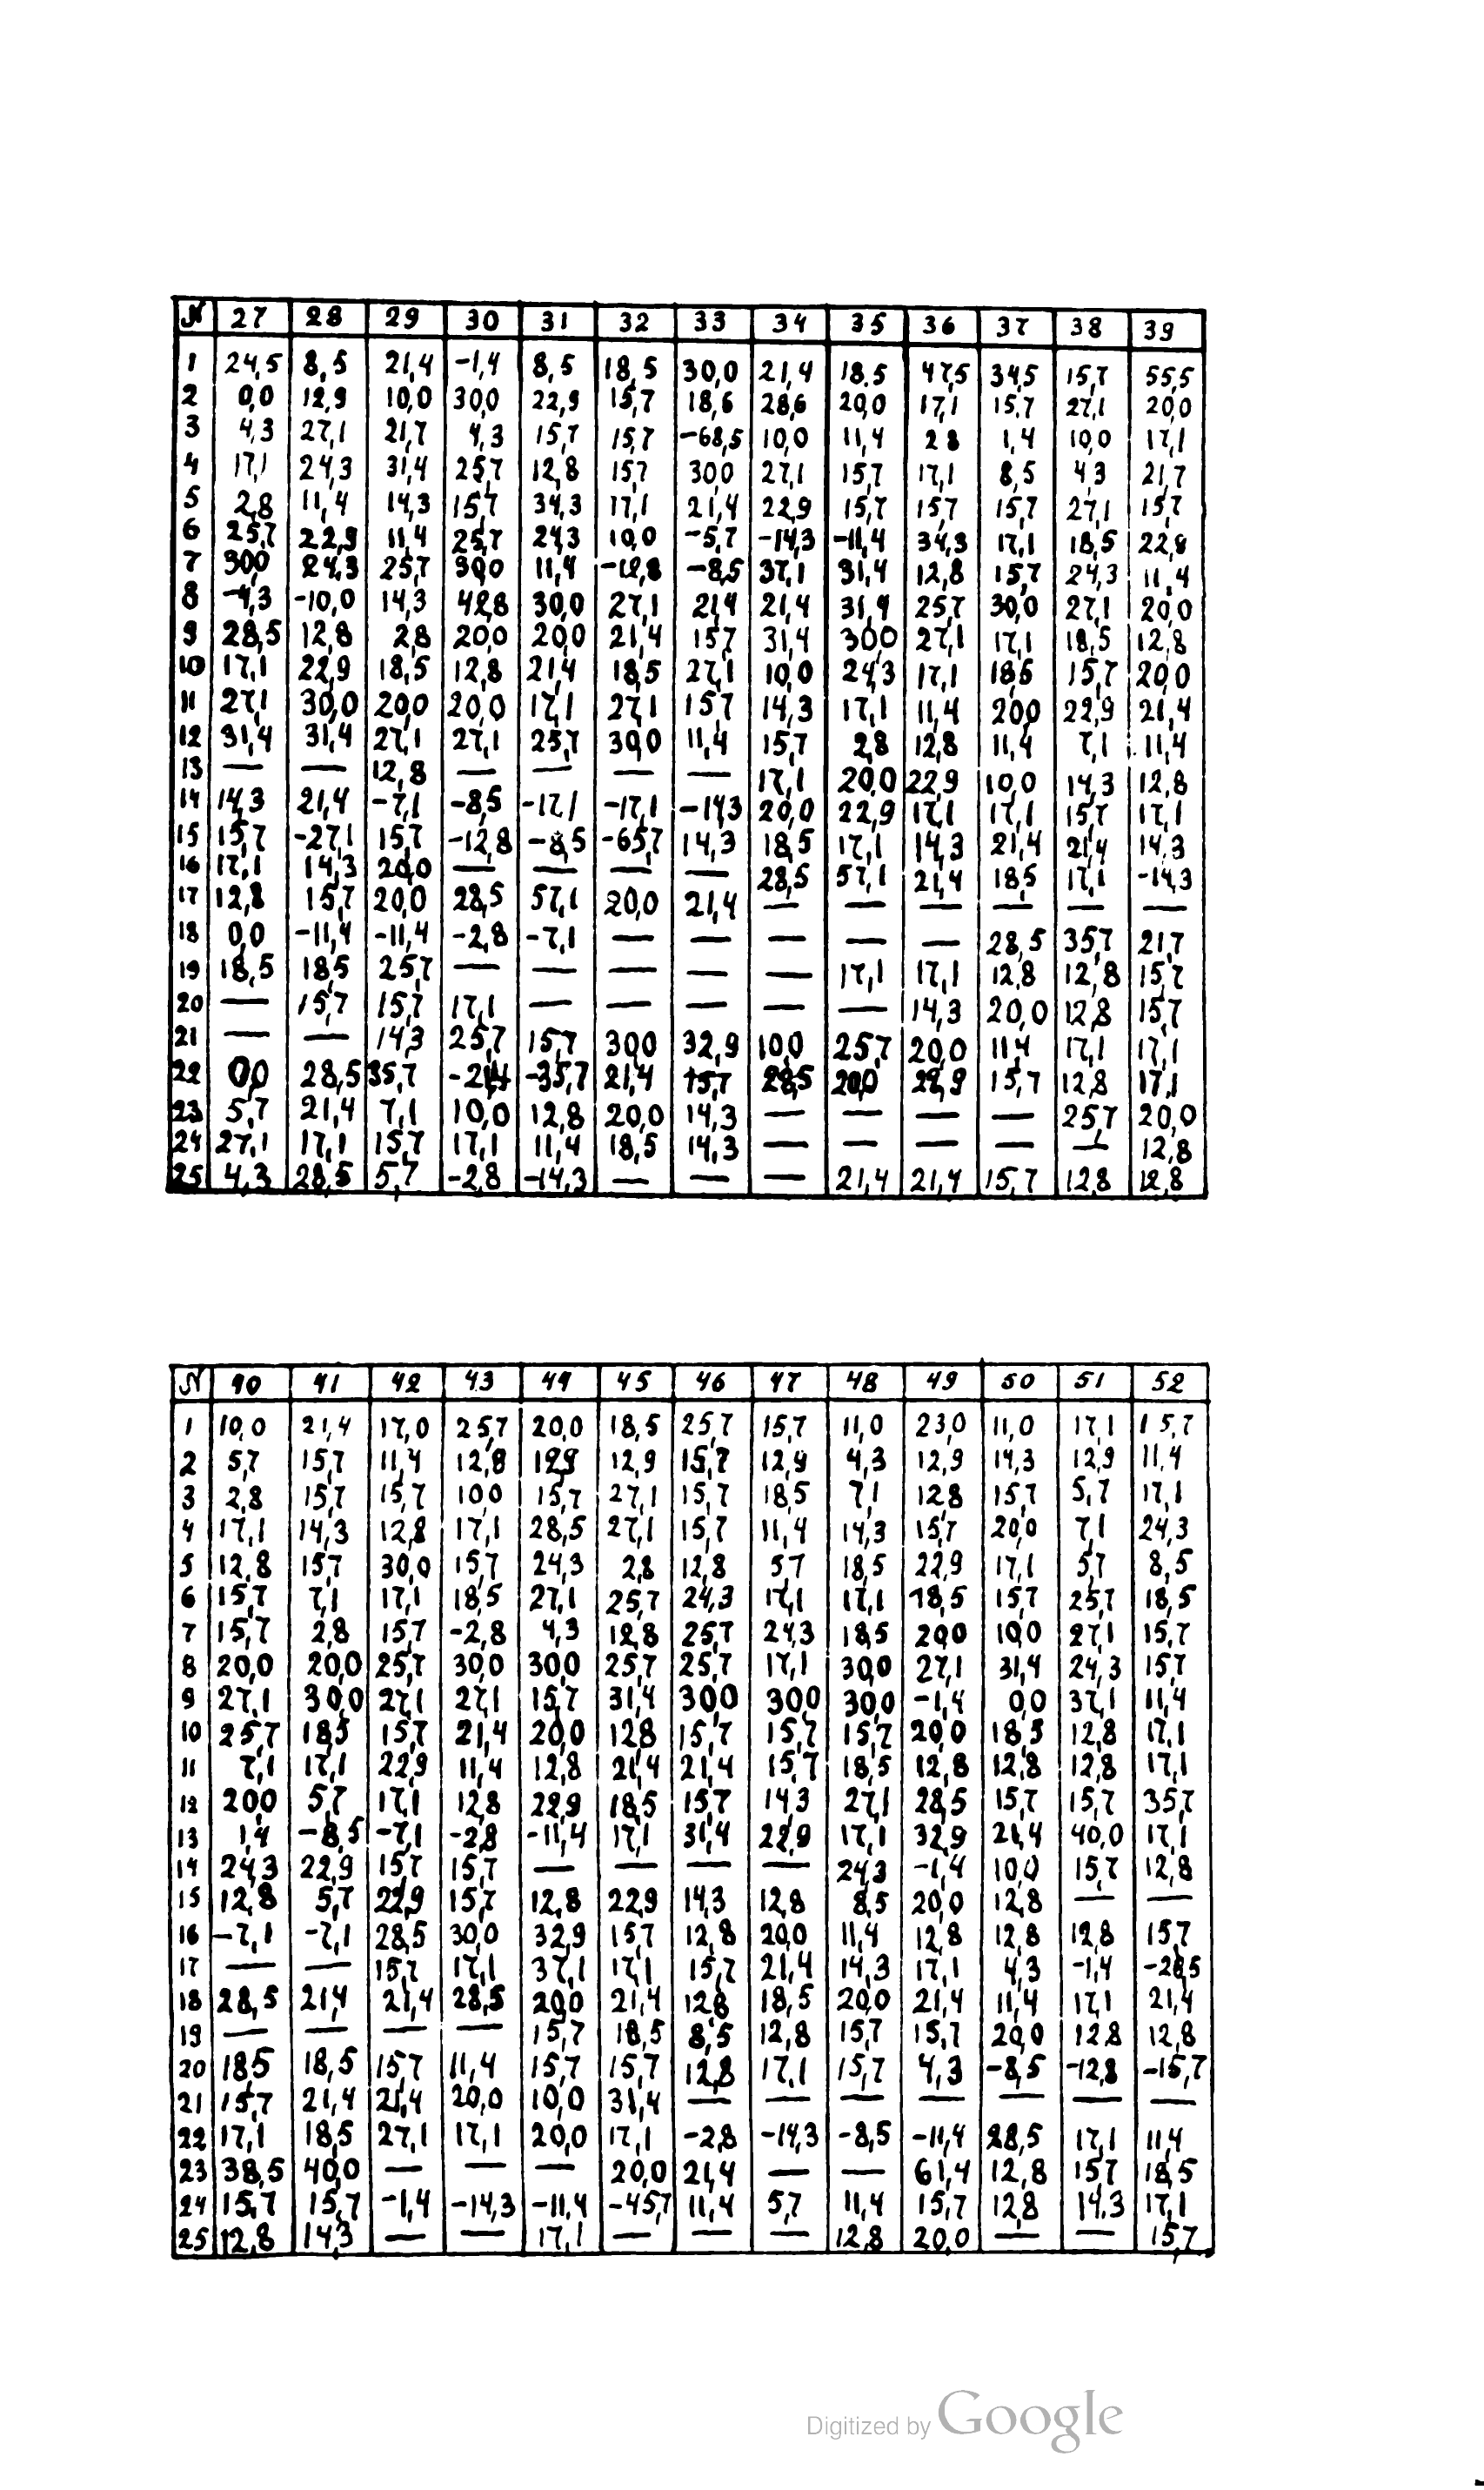 N 27 28 29 30 31 32 33 34 35 36 37 38 39
1 24,5 8,5 21,4 -1,4 8,5 18,5 30,0 21,4 18.5 47,5 34,5 15,7 55,5
2 0,0 12,9 10,0 30,0 22,9 15,7 18,6 28,6 20,0 17,1 15,7 27,1 20,0
3 4,3 27,1 21,7 4,3 15,7 15,7 -68,5 10,0 11,4 2 8 1,4 10,0 17,1
4 17,1 24,3 31,4 25,7 12,8 15,7 30,0 27,1 15,7 17,1 8,5 4,3 21,7
5 2,8 11,4 14,3 15,7 34,3 17,1 21,4 22,9 15,7 15,7 15,7 27,1 15,7
6 25,7 22,9 11,4 25,7 24,3 10,0 -5,7 -14,3 -11,4 34,3 17,1 18,5 22,8
7 30,0 24,3 25,7 30,0 11,4 -12,8 -8,5 37,1 31,4 12,8 15,7 24,3 11,4
8 -4,3 -10,0 14,3 42,8 30,0 27,1 21,4 21,4 31,4 25,7 30,0 27,1 20,0
9 28,5 12,8 2,8 20,0 20,0 21,4 15,7 31,4 30,0 27,1 17,1 18,5 12,8
10 17,1 22,9 18,5 12,8 21,4 18,5 27,1 10,0 24,3 17,1 18,5 15,7 20,0
11 27,1 30,0 20,0 20,0 17,1 27,1 15,7 14,3 17,1 11,4 20,0 22,9 21,4
12 31,4 31,4 27,1 27,1 25,7 30,0 11,4 15,7 2,8 12,8 11,4 7,1 11,4
13 — — 12,8 — — — — 17,1 20,0 22,9 10,0 14,3 12,8
14 14,3 21,4 -7,1 -8,5 -17,1 -17,1 -14,3 20,0 22,9 17,1 17,1 15,7 17,1
15 15,7 -27,1 15,7 -12,8 -8,5 -65,7 14,3 18,5 17,1 14,3 21,4 21,4 14,3
16 17,1 14,3 20,0 — — — — 28,5 57,1 21,4 18,5 17,1 -14,3
17 12,8 15,7 20,0 28,5 57,1 20,0 21,4 — — — — — —
18 0,0 -11,4 -11,4 -2,8 -7,1 — — — — — 28,5 35,7 21,7
19 18,5 18,5 25,7 — — — — — 17,1 17,1 12,8 12,8 15,7
20 — 15,7 15,7 17,1 — — — — — 14,3 20,0 12,8 15,7
21 — — 14,3 25,7 15,7 30,0 32,9 10,0 25,7 20,0 11,4 17,1 17,1
22 0,0 28,5 35,7 -21,4 -35,7 21,4 15,7 28,5 20,0 22,9 15,7 12,8 17,1
23 5,7 21,4 7,1 10,0 12,8 20,0 14,3 — — — — 25,7 20,0
24 27,1 17,1 15,7 17,1 11,4 18,5 14,3 — — — — — 12,8
25 4,3 28,5 5,7 -2,8 -14,3 — — — 21,4 21,4 15,7 12,8 12,8
N 40 41 42 43 44 45 46 47 48 49 50 51 52
1 10,0 21,4 17,0 25,7 20,0 18,5 25,7 15,7 11,0 23,0 11,0 17,1 15,7
2 5,7 15,7 11,4 12,8 12,9 12,9 15,7 12,9 4,3 12,9 14,3 12,9 11,4
3 2,8 15,7 15,7 10,0 15,7 27,1 15,7 18,5 7,1 12,8 15,7 5,7 17,1
4 17,1 14,3 12,8 17,1 28,5 27,1 15,7 11,4 14,3 15,7 20,0 7,1 24,3
5 12,8 15,7 30,0 15,7 24,3 2,8 12,8 5,7 18,5 22,9 17,1 5,7 8,5
6 15,7 7,1 17,1 18,5 27,1 25,7 24,3 17,1 17,1 18,5 15,7 25,7 18,5
7 15,7 2,8 15,7 -2,8 4,3 12,8 25,7 24,3 18,5 20,0 10,0 27,1 15,7
8 20,0 20,0 25,7 30,0 30,0 25,7 25,7 17,1 30,0 27,1 31,4 24,3 15,7
9 27,1 30,0 27,1 27,1 15,7 31,4 30,0 30,0 30,0 -1,4 0,0 37,1 11,4
10 25,7 18,5 15,7 21,4 20,0 12,8 15,7 15,7 15,7 20,0 18,5 12,8 17,1
11 7,1 17,1 22,9 11,4 12,8 21,4 21,4 15,7 18,5 12,8 12,8 12,8 17,1
12 20,0 5,7 17,1 12,8 22,9 18,5 15,7 14,3 27,1 28,5 15,7 15,7 35,7
13 1,4 -8,5 -7,1 -2,8 -11,4 17,1 31,4 22,9 17,1 32,9 21,4 40,0 17,1
14 24,3 22,9 15,7 15,7 — — — — 24,3 -1,4 10,0 15,7 12,8
15 12,8 5,7 22,9 15,7 12,8 22,9 14,3 12,8 8,5 20,0 12,8 — —
16 -7,1 -7,1 28,5 30,0 32,9 15,7 12,8 20,0 11,4 12,8 12,8 12,8 15,7
17 — — 15,7 17,1 37,1 17,1 15,7 21,4 14,3 17,1 4,3 -1,4 -28,5
18 28,5 21,4 21,4 28,5 20,0 21,4 12,8 18,5 20,0 21,4 11,4 17,1 21,4
19 — — — — 15,7 18,5 8,5 12,8 15,7 15,7 20,0 12,8 12,8
20 18,5 18,5 15,7 11,4 15,7 15,7 12,8 17,1 15,7 4,3 -8,5 -12,8 -15,7
21 15,7 21,4 21,4 20,0 10,0 31,4 — — — — — — —
22 17,1 18,5 27,1 17,1 20,0 17,1 -2,8 -14,3 -8,5 -11,4 28,5 17,1 11,4
23 38,5 40,0 — — — 20,0 21,4 — — 61,4 12,8 15,7 18,5
24 15,7 15,7 -1,4 -14,3 -11,4 -45,7 11,4 5,7 11,4 15,7 12,8 14.3 17,1
25 12,8 14,3 — — 17,1 — — — 12,8 20,0 — — 15,7
Digitized by Google